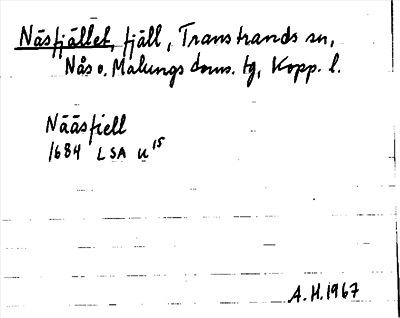 Näsfjället, fjäll, Transtrands sn,
Nås o. Malungs doms. tg, Kopp. l.
Nääsfiell
1684 LSA u15
A.H. 1967